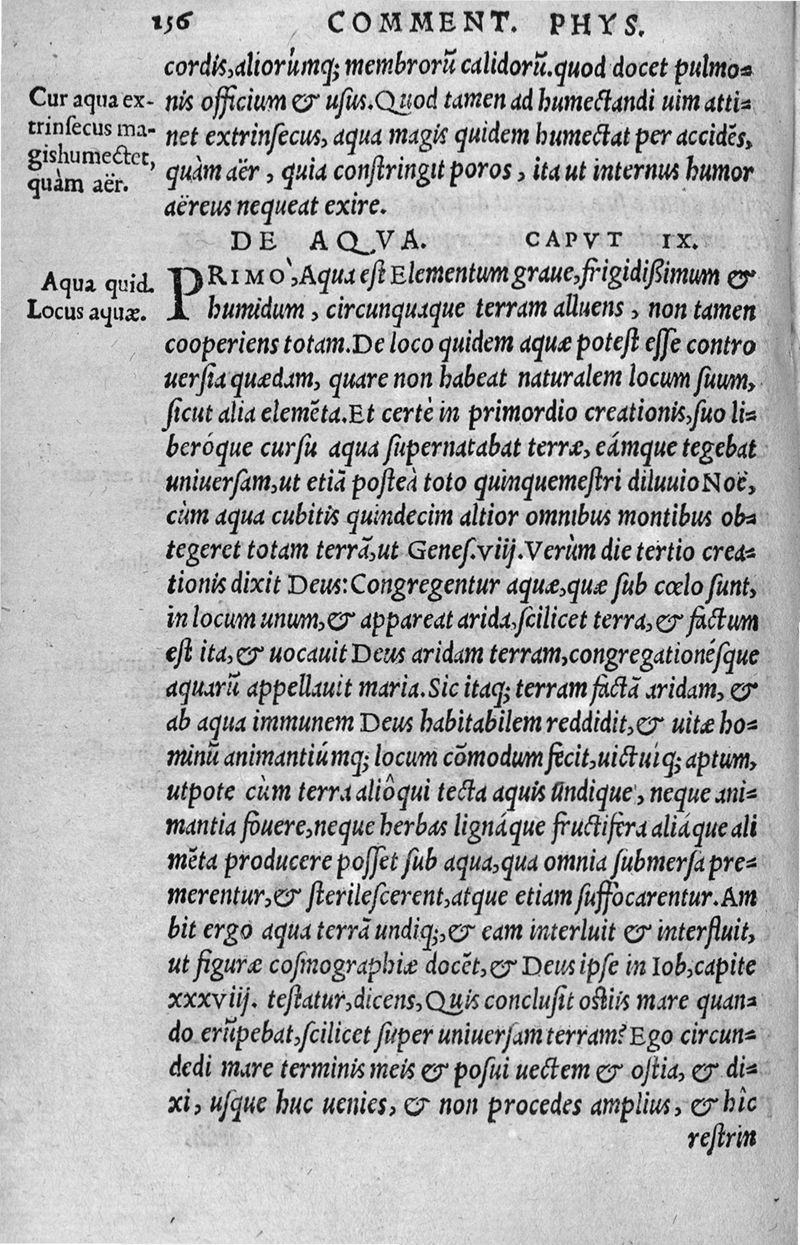 156 COMMENT. PHYS.
cordis, aliorúmq; membrorũ calidorũ. quod docet pulmo-
Cur aqua ex-
trinſecus ma-
gishumectet,
quàm aër.
nis officium & uſus. Quod tamen ad humectandi uim atti-
net extrinſecus, aqua magis quidem humectat per accidẽs,
quàm aër, quia conſtringit poros, ita ut internus humor
aëreus nequeat exire.
DE AQVA. CAPVT IX.
Aqua quid.
Locus aquæ.
PRIMÒ, Aqua eſt Elementum graue, frigidißimum &
humidum, circunquaque terram alluens, non tamen
cooperiens totam. De loco quidem aquæ poteſt eſſe contro
uerſia quædam, quare non habeat naturalem locum ſuum,
ſicut alia elemẽta. Et certè in primordio creationis, ſuo li-
beróque curſu aqua ſupernatabat terræ, eámque tegebat
uniuerſam, ut etiã poſteà toto quinquemeſtri diluuio Noë,
cùm aqua cubitis quindecim altior omnibus montibus ob-
tegeret totam terrã, ut Geneſ. viij. Verùm die tertio crea-
tionis dixit Deus: Congregentur aquæ, quæ ſub cœlo ſunt,
in locum unum, & appareat arida, ſcilicet terra, & factum
eſt ita, & uocauit Deus aridam terram, congregationéſque
aquarũ appellauit maria. Sic itaq; terram factã aridam, &
ab aqua immunem Deus habitabilem reddidit, & uitæ ho-
minũ animantiúmq; locum cõmodum fecit, uictuíq; aptum,
utpote cùm terra aliôqui tecta aquis undique, neque ani-
mantia fouere, neque herbas lignáque fructifera aliáque ali
mẽta producere poſſet ſub aqua, qua omnia ſubmerſa pre-
merentur, & ſterileſcerent, atque etiam ſuffocarentur. Am
bit ergo aqua terrã undiq;, & eam interluit & interfluit,
ut figuræ coſmographiæ docẽt, & Deus ipſe in Iob, capite
xxxviij. teſtatur, dicens, Quis concluſit oſtiis mare quan-
do erũpebat, ſcilicet ſuper uniuerſam terram? Ego circun-
dedi mare terminis meis & poſui uectem & oſtia, & di-
xi, uſque huc uenies, & non procedes amplius, & hîc
reſtrin